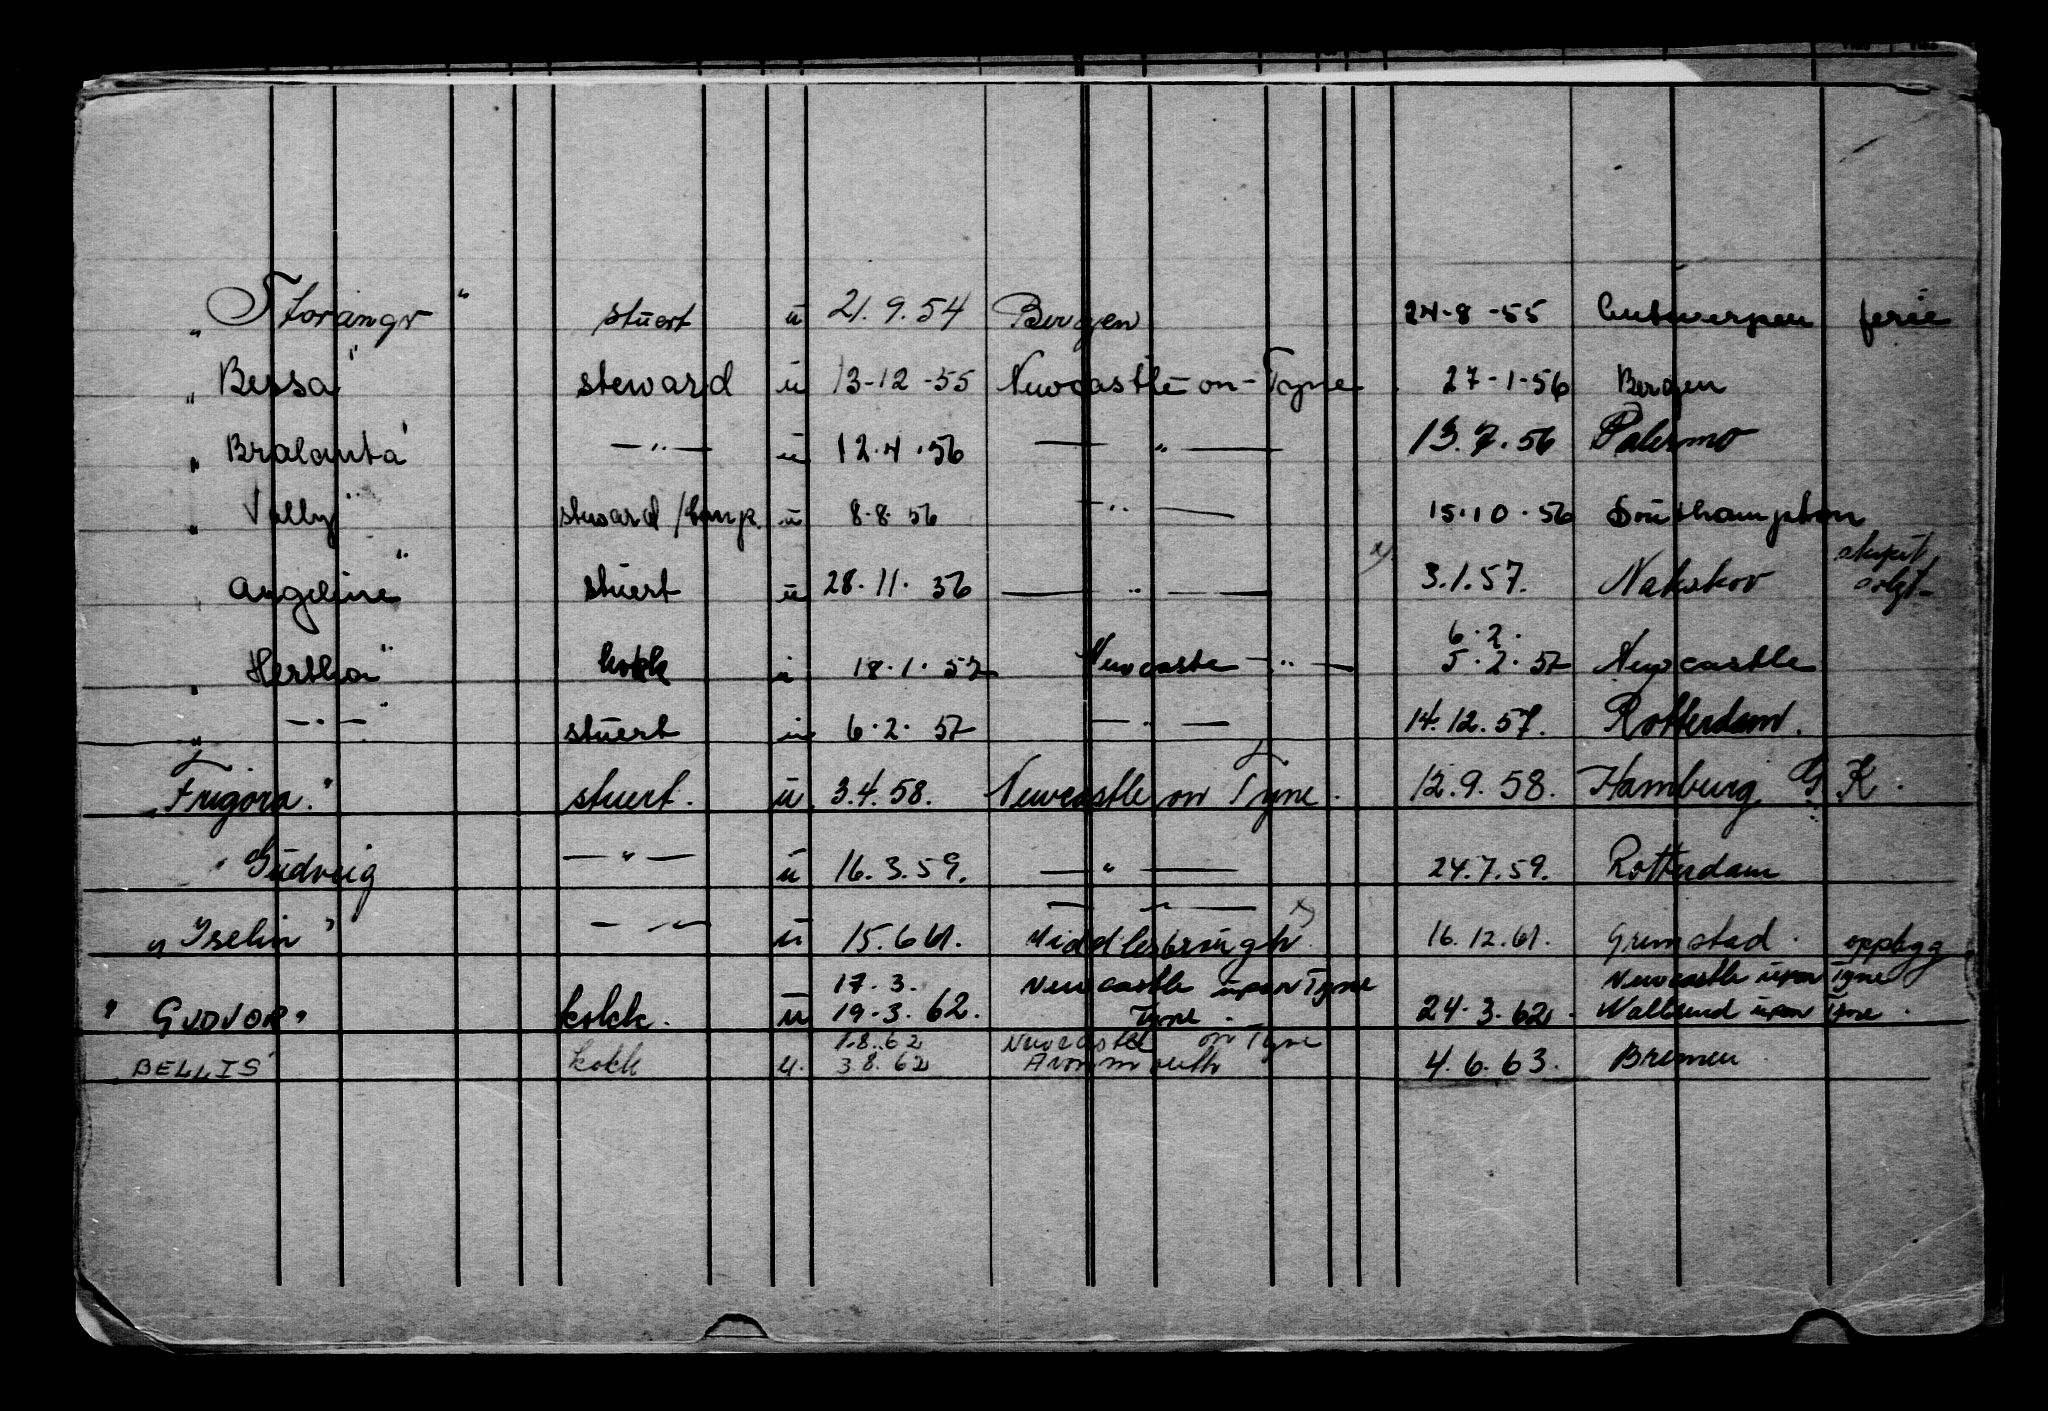 „ Storanger " stuert u 21.9.54 Bergen 24-8-55 Antwerpen ferie
„ Bessa " steward u 13-12-55 Newcastle-on-Tyne 27-1-56 Bergen
„ Bralanta " —"— u 12.4.56 —"— 13.7.56 Palermo
„ Vally " steward u 8.8.56 —"— 15.10.56 Southampton
„ Angeline " stuert u 28.11.56 —"— x) 3.1.57. Nakskov skipet solgt
6.2.
„ Hertha " kokk u 18.1.57 Newcastle —"— 5.2.57 Newcastle
„ —"— " stuert u 6.2.57 —"— 14.12.57. Rotterdam.
„ Frigora." stuert. u 3.4.58. Newcastle on Tyne. 12.9.58. Hamburg G K.
" Gudveig —"— u 16.3.59. —"— 24.7.59. Rotterdam
—"— x)
„ Iselin " —"— u 15.6.61. Middlesbrough 16.12.61. Grimstad. oppbygg
17.3. Newcastle upon Tyne Newcastle upon Tyne
" GUDVOR " kokk. u 19.3.62. Tyne. 24.3.62. Wallsend upon Tyne.
1.8.62 Newcastle on Tyne
BELLIS " kokk u. 3.8.62 Avonmouth 4.6.63. Bremen